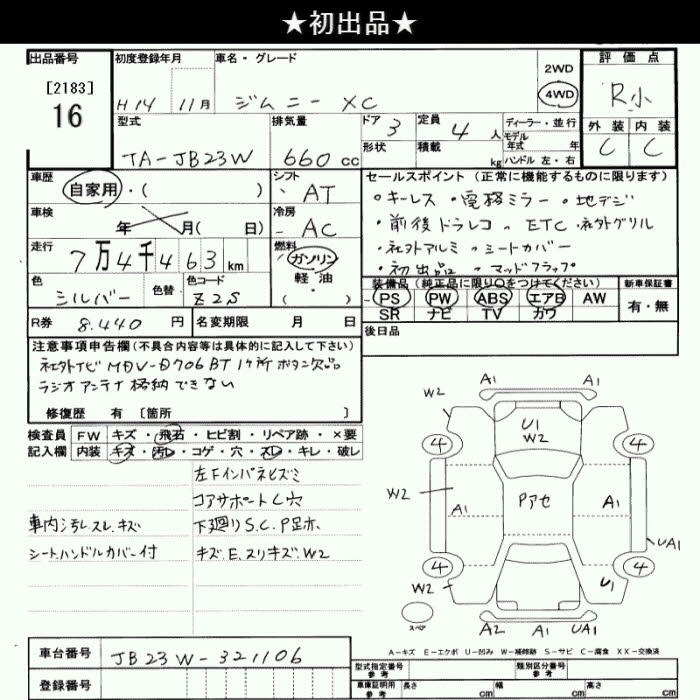 ★初出品★
出品番号
[2183]
16
初度登録年月
H14 11月
車名・グレード
ジムニー XC
2WD
4WD
評価点
R小
外装 内装
C C
型式
TA-JB23W
排気量
660 cc
ドア 3
形状
定員 4 人
積載 kg
ディーラー・並行
モデル年式 年
ハンドル 左・右
車歴
自家用・( )
シフト
AT
車検
年 月( 日)
冷房
AC
走行
7万4千463 km
燃料
ガソリン
軽油
・( )
色
シルバー
色替
色コード
Z2S
R券 8.440 円
名変期限 月 日
セールスポイント (正常に機能するものに限ります)
・キーレス ・電格ミラー ・地デジ
・前後ドラレコ 〃 ETC ・社外グリル
・社外アルミ 〃 シートカバー
・初出品 〃 マッドフラップ
装備品 (純正品に限り○をつけてください)
PS PW ABS エアB AW
SR ナビ TV カワ
新車保証書
有・無
後日品
注意事項申告欄 (不具合内容等は具体的に記入して下さい)
社外ナビ MDV-D706BT 1ヶ所ボタン欠品
ラジオアンテナ格納できない
修復歴 有 [箇所 ]
検査員 FW キズ・飛石・ヒビ割・リペア跡・×要
記入欄 内装 キズ・汚レ・コゲ・穴・スレ・キレ・破レ
左Fインパネヒズミ
コアサポートし穴
車内汚レスレ.キズ
下廻りS.C.P
シートハンドルカバー付
キズ.E.スリキズ.W2
A1 A1
W2
U1
W2
4 4
W2
A1
Pアセ
A1
UA1
4 4
W2
U1
スペア
A2 A1 UA1
A-キズ E-エクボ U-凹み W-補修跡 S-サビ C-腐食 XX-交換済
車台番号 JB23W-321106
登録番号
型式指定番号
参考
類別区分番号
参考
車庫証明用
参考
長さ cm 幅 cm 高さ cm